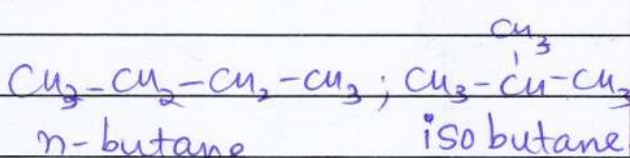 CH₃
CH₃-CH₂-CH₂-CH₃ ; CH₃-CH-CH₃
n-butane isobutane